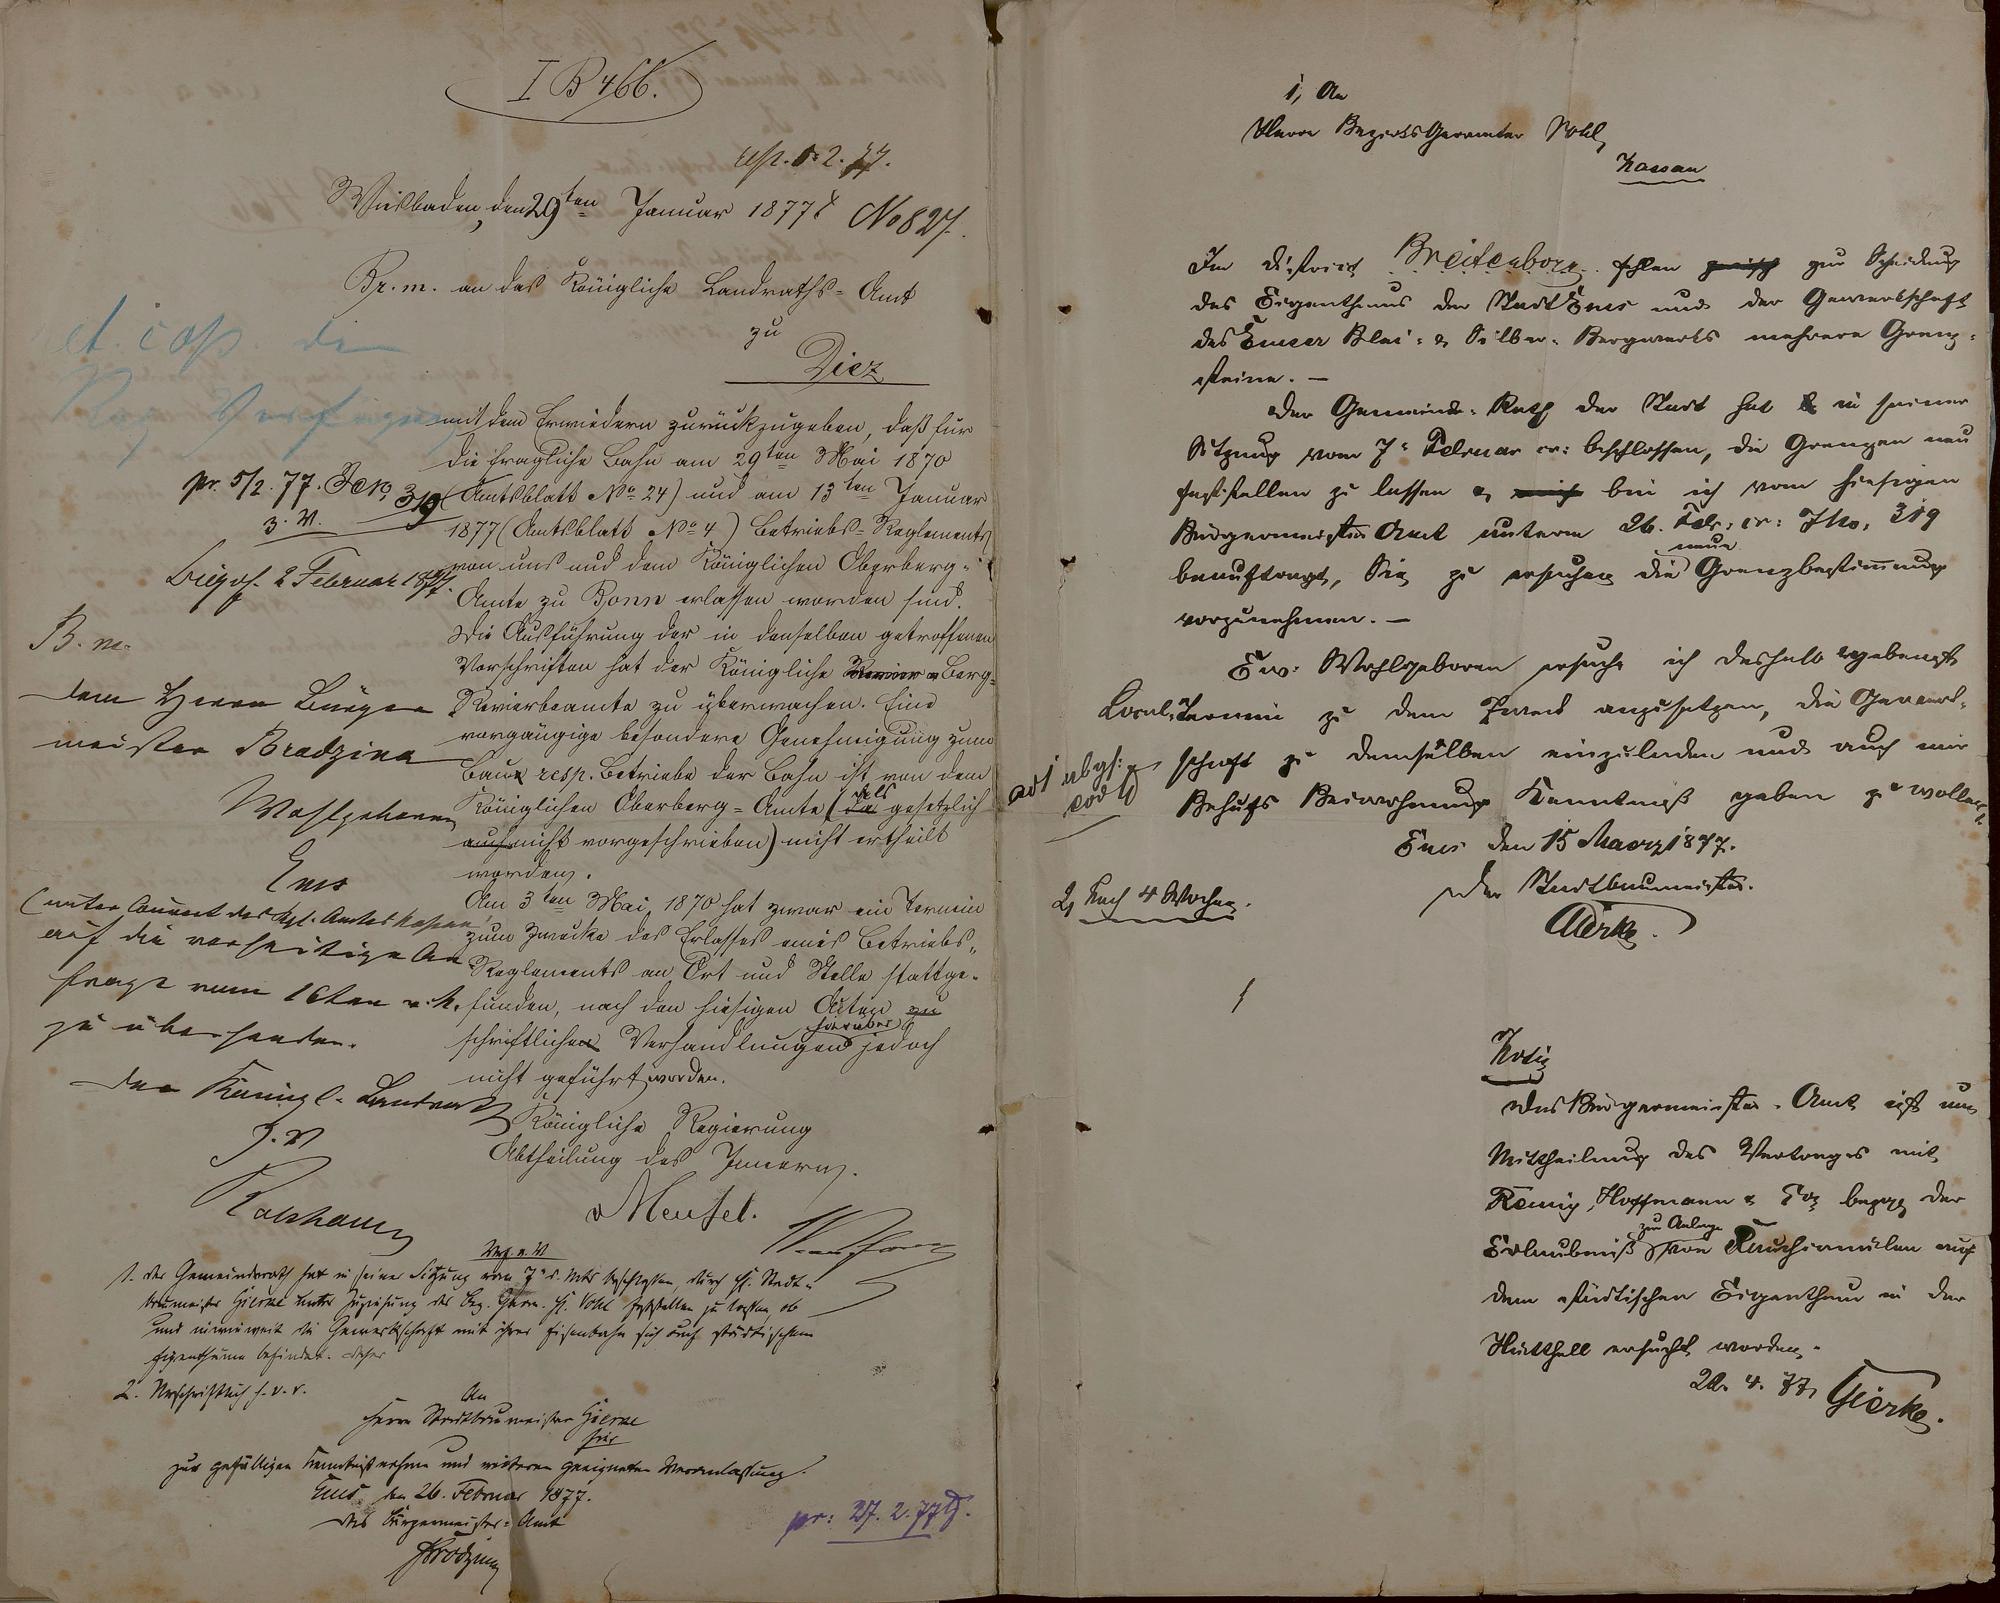 I B 466.
resp. 5. 2. 77.
Wiesbaden, den 29ten Januar 1877 No 827.
Br. m. an das Königliche Landraths-Amt
zu
Diez
mit dem Erwiedern zurückzugeben, daß für
die fragliche Bahn am 29ten Mai 1870
(Amtsblatt No 24) und am 13ten Januar
1877 (Amtsblatt No 4) Betriebs-Reglements
von uns und dem Königlichen Oberberg-
Amte zu Bonn erlassen worden sind.
Die Ausführung der in denselben getroffenen
Vorschriften hat der Königliche Revier Berg-
Revierbeamte zu überwachen. Eine
vorgängige besondere Genehmigung zum
Bau resp. Betriebe der Bahn ist von dem
Königlichen Oberberg-Amte (da als gesetzlich
auch nicht vorgeschrieben) nicht ertheilt
worden.
Am 3ten Mai 1870 hat zwar ein Termin
zum Zwecke des Erlasses eines Betriebs-
Reglements an Ort und Stelle stattge-
funden, nach den hiesigen Akten
schriftliche Verhandlungen hierüber jedoch
nicht geführt worden.
Königliche Regierung
Abtheilung des Innern.
Meusel.
et. cop. der
Reg Verfügung
pr. 5/2. 77. JNo 319
z. V.
Diez, 2 Februar 1877.
B. m.
dem Herrn Bürger
meister Brodzina
Wohlgeboren
Ems
(unter Couvert des Kgl. Amtes Nassau)
auf die vorseitige An
frage vom 16ten v. M.
zu übersenden.
Der Königl. Landrath
J. V
1. Der Gemeinderath hat in seiner Sitzung vom 7. d. Mts beschlossen, durch H. Stadt-
baumeister Gierke unter Zuziehung des Bez. Geom. H. Pohl feststellen zu lassen, ob
und inwieweit die Gewerkschaft mit ihrer Eisenbahn sich auf städtischem
Eigenthume befindet. daher
2. Urschriftlich s. v. r.
An
Herrn Stadtbaumeister Gierke
hier
zur gefälligen Kenntnißnahme und weiteren geeigneten Veranlassung.
Ems den 26. Februar 1877.
Das Bürgermeister-Amt
Brodzina
pr: 27. 2. 77 G.
1, An
Herrn Bezirks Geometer Pohl
Nassau
Im District Breitenborn fehlen zur Scheidung
des Eigenthums der Stadt Ems und der Gewerkschaft
des Emser Blei- & Silber-Bergwerks mehrere Grenz-
steine. —
Der Gemeinde-Rath der Stadt hat in seiner
Sitzung vom 7. Februar cr: beschlossen, die Grenzen neu
feststellen zu lassen & bin ich vom hiesigen
Bürgermeister Amt unterm 26. Febr. cr: J No. 319
beauftragt, Sie zu ersuchen die neue Grenzbestimmung
vorzunehmen. —
Ew: Wohlgeboren ersuche ich deshalb ergebenst
Local-Termin zu dem Zweck anzusetzen, die Gewerk-
schaft zu demselben einzuladen und auch mir
Behufs Beiwohnung Kenntniß geben zu wollen.
ad 1 abgs:
Ems den 15 Maerz 1877.
Der Stadtbaumeister.
Gierke.
2, Nach 4 Wochen.
Notiz
Das Bürgermeister-Amt ist um
Mittheilung des Vertrages mit
Remy, Hoffmann & Co bezgl. der
Erlaubniß zur Anlage von Rauchcanälen auf
dem städtischen Eigenthum in der
Hüttthell ersucht worden.
22. 4. 77, Gierke.